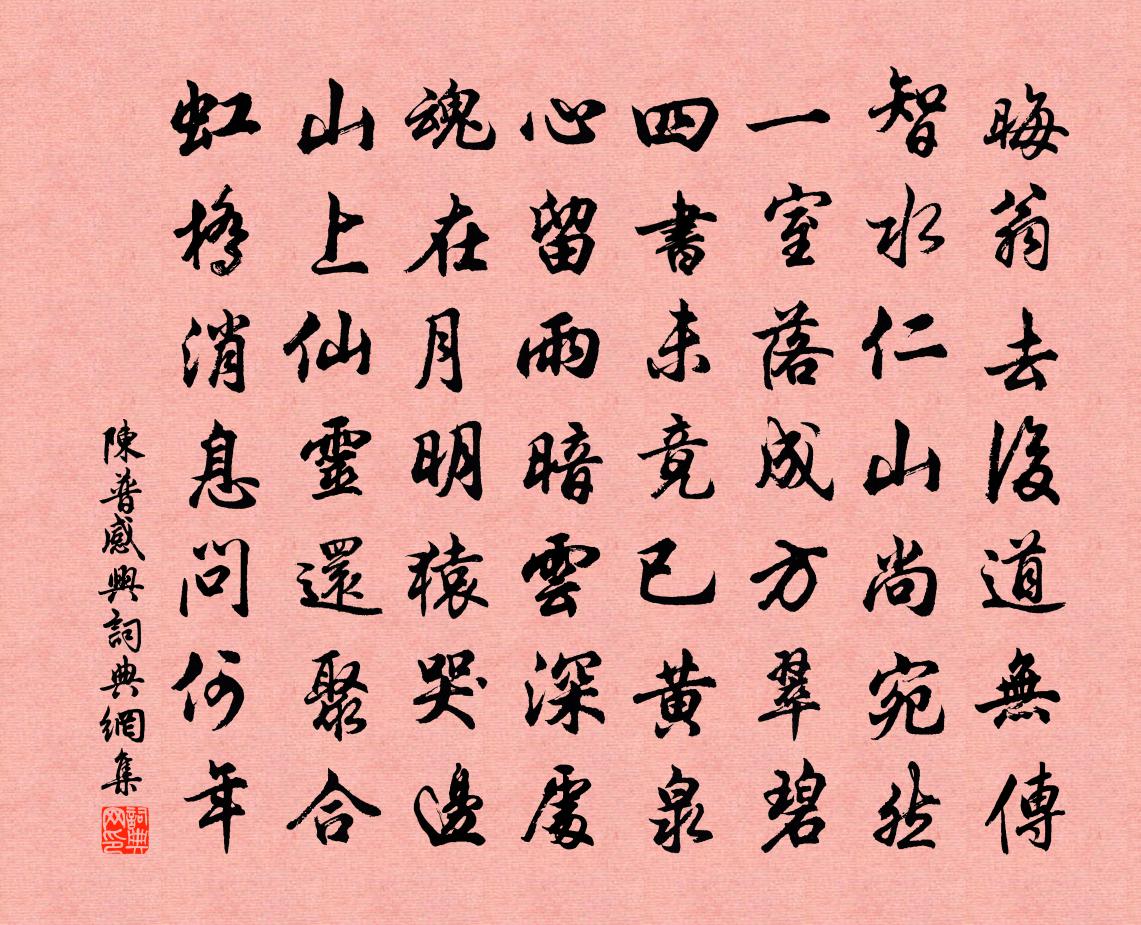 晦翁去後道無傳
智水仁山尚宛然
一室落成方翠碧
四書未竟已黃泉
心留雨暗雲深處
魂在月明猿哭邊
山上仙靈還聚合
虹橋消息問何年
陳普感興詞典網集
詞典網印